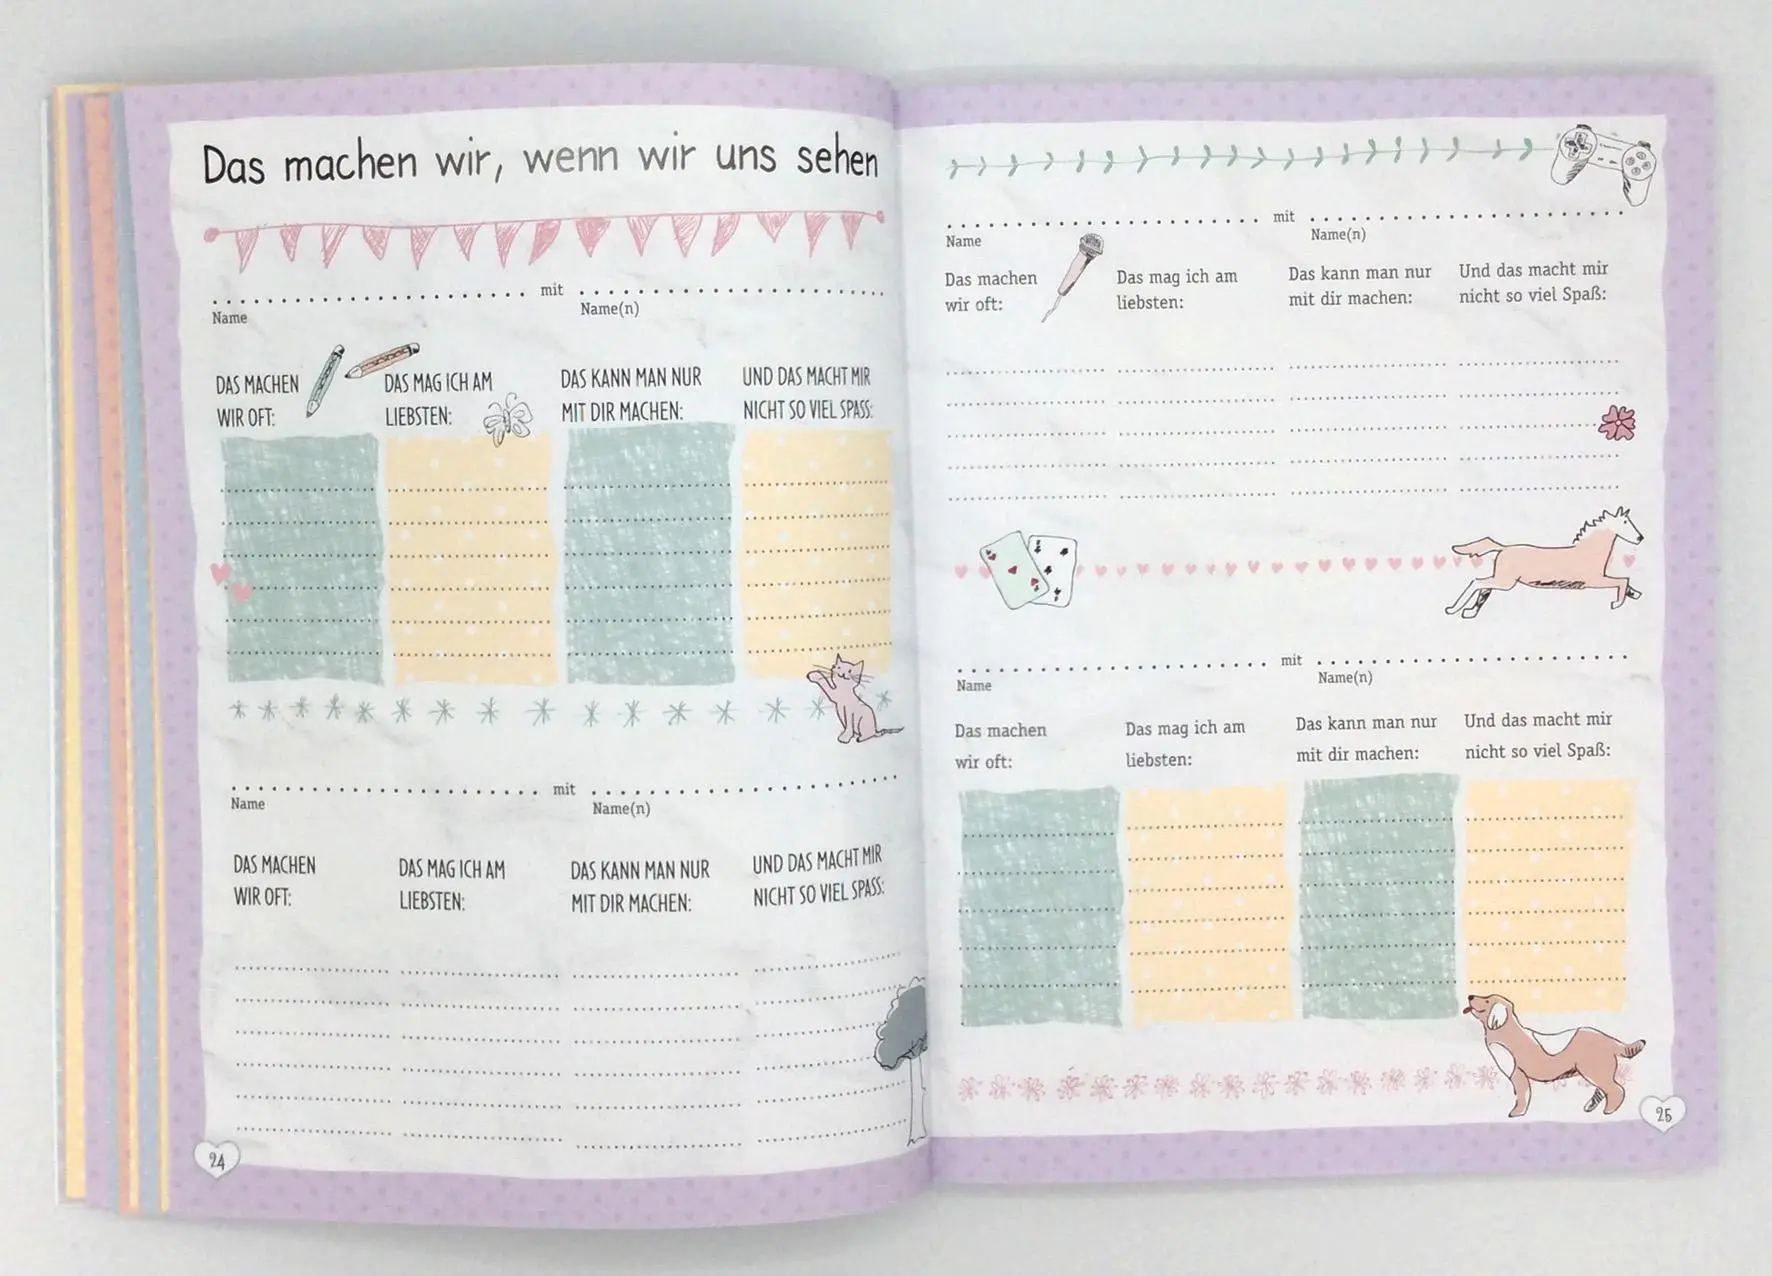 Das machen wir, wenn wir uns sehen
mit
Name
Name(n)
DAS MACHEN
WIR OFT:
DAS MAG ICH AM
LIEBSTEN:
DAS KANN MAN NUR
MIT DIR MACHEN:
UND DAS MACHT MIR
NICHT SO VIEL SPASS:
mit
Name
Name(n)
DAS MACHEN
WIR OFT:
DAS MAG ICH AM
LIEBSTEN:
DAS KANN MAN NUR
MIT DIR MACHEN:
UND DAS MACHT MIR
NICHT SO VIEL SPASS:
24
mit
Name
Name(n)
Das machen
wir oft:
Das mag ich am
liebsten:
Das kann man nur
mit dir machen:
Und das macht mir
nicht so viel Spaß:
mit
Name
Name(n)
Das machen
wir oft:
Das mag ich am
liebsten:
Das kann man nur
mit dir machen:
Und das macht mir
nicht so viel Spaß:
25